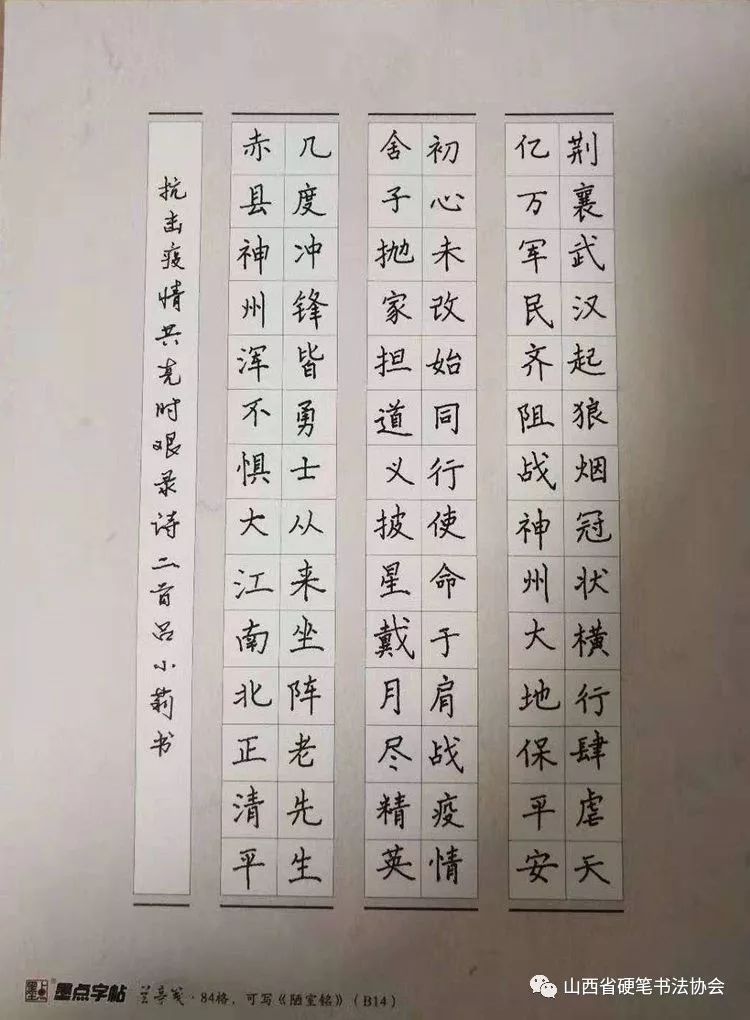 荆襄武汉起狼烟冠状横行肆虐天
亿万军民齐阻战神州大地保平安
初心未改始同行使命于肩战疫情
舍子抛家担道义披星戴月尽精英
几度冲锋皆勇士从来坐阵老先生
赤县神州浑不惧大江南北正清平
抗击疫情共克时艰录诗二首吕小莉书
墨点字帖 兰亭笺·84格,可写《陋室铭》(B14)
山西省硬笔书法协会